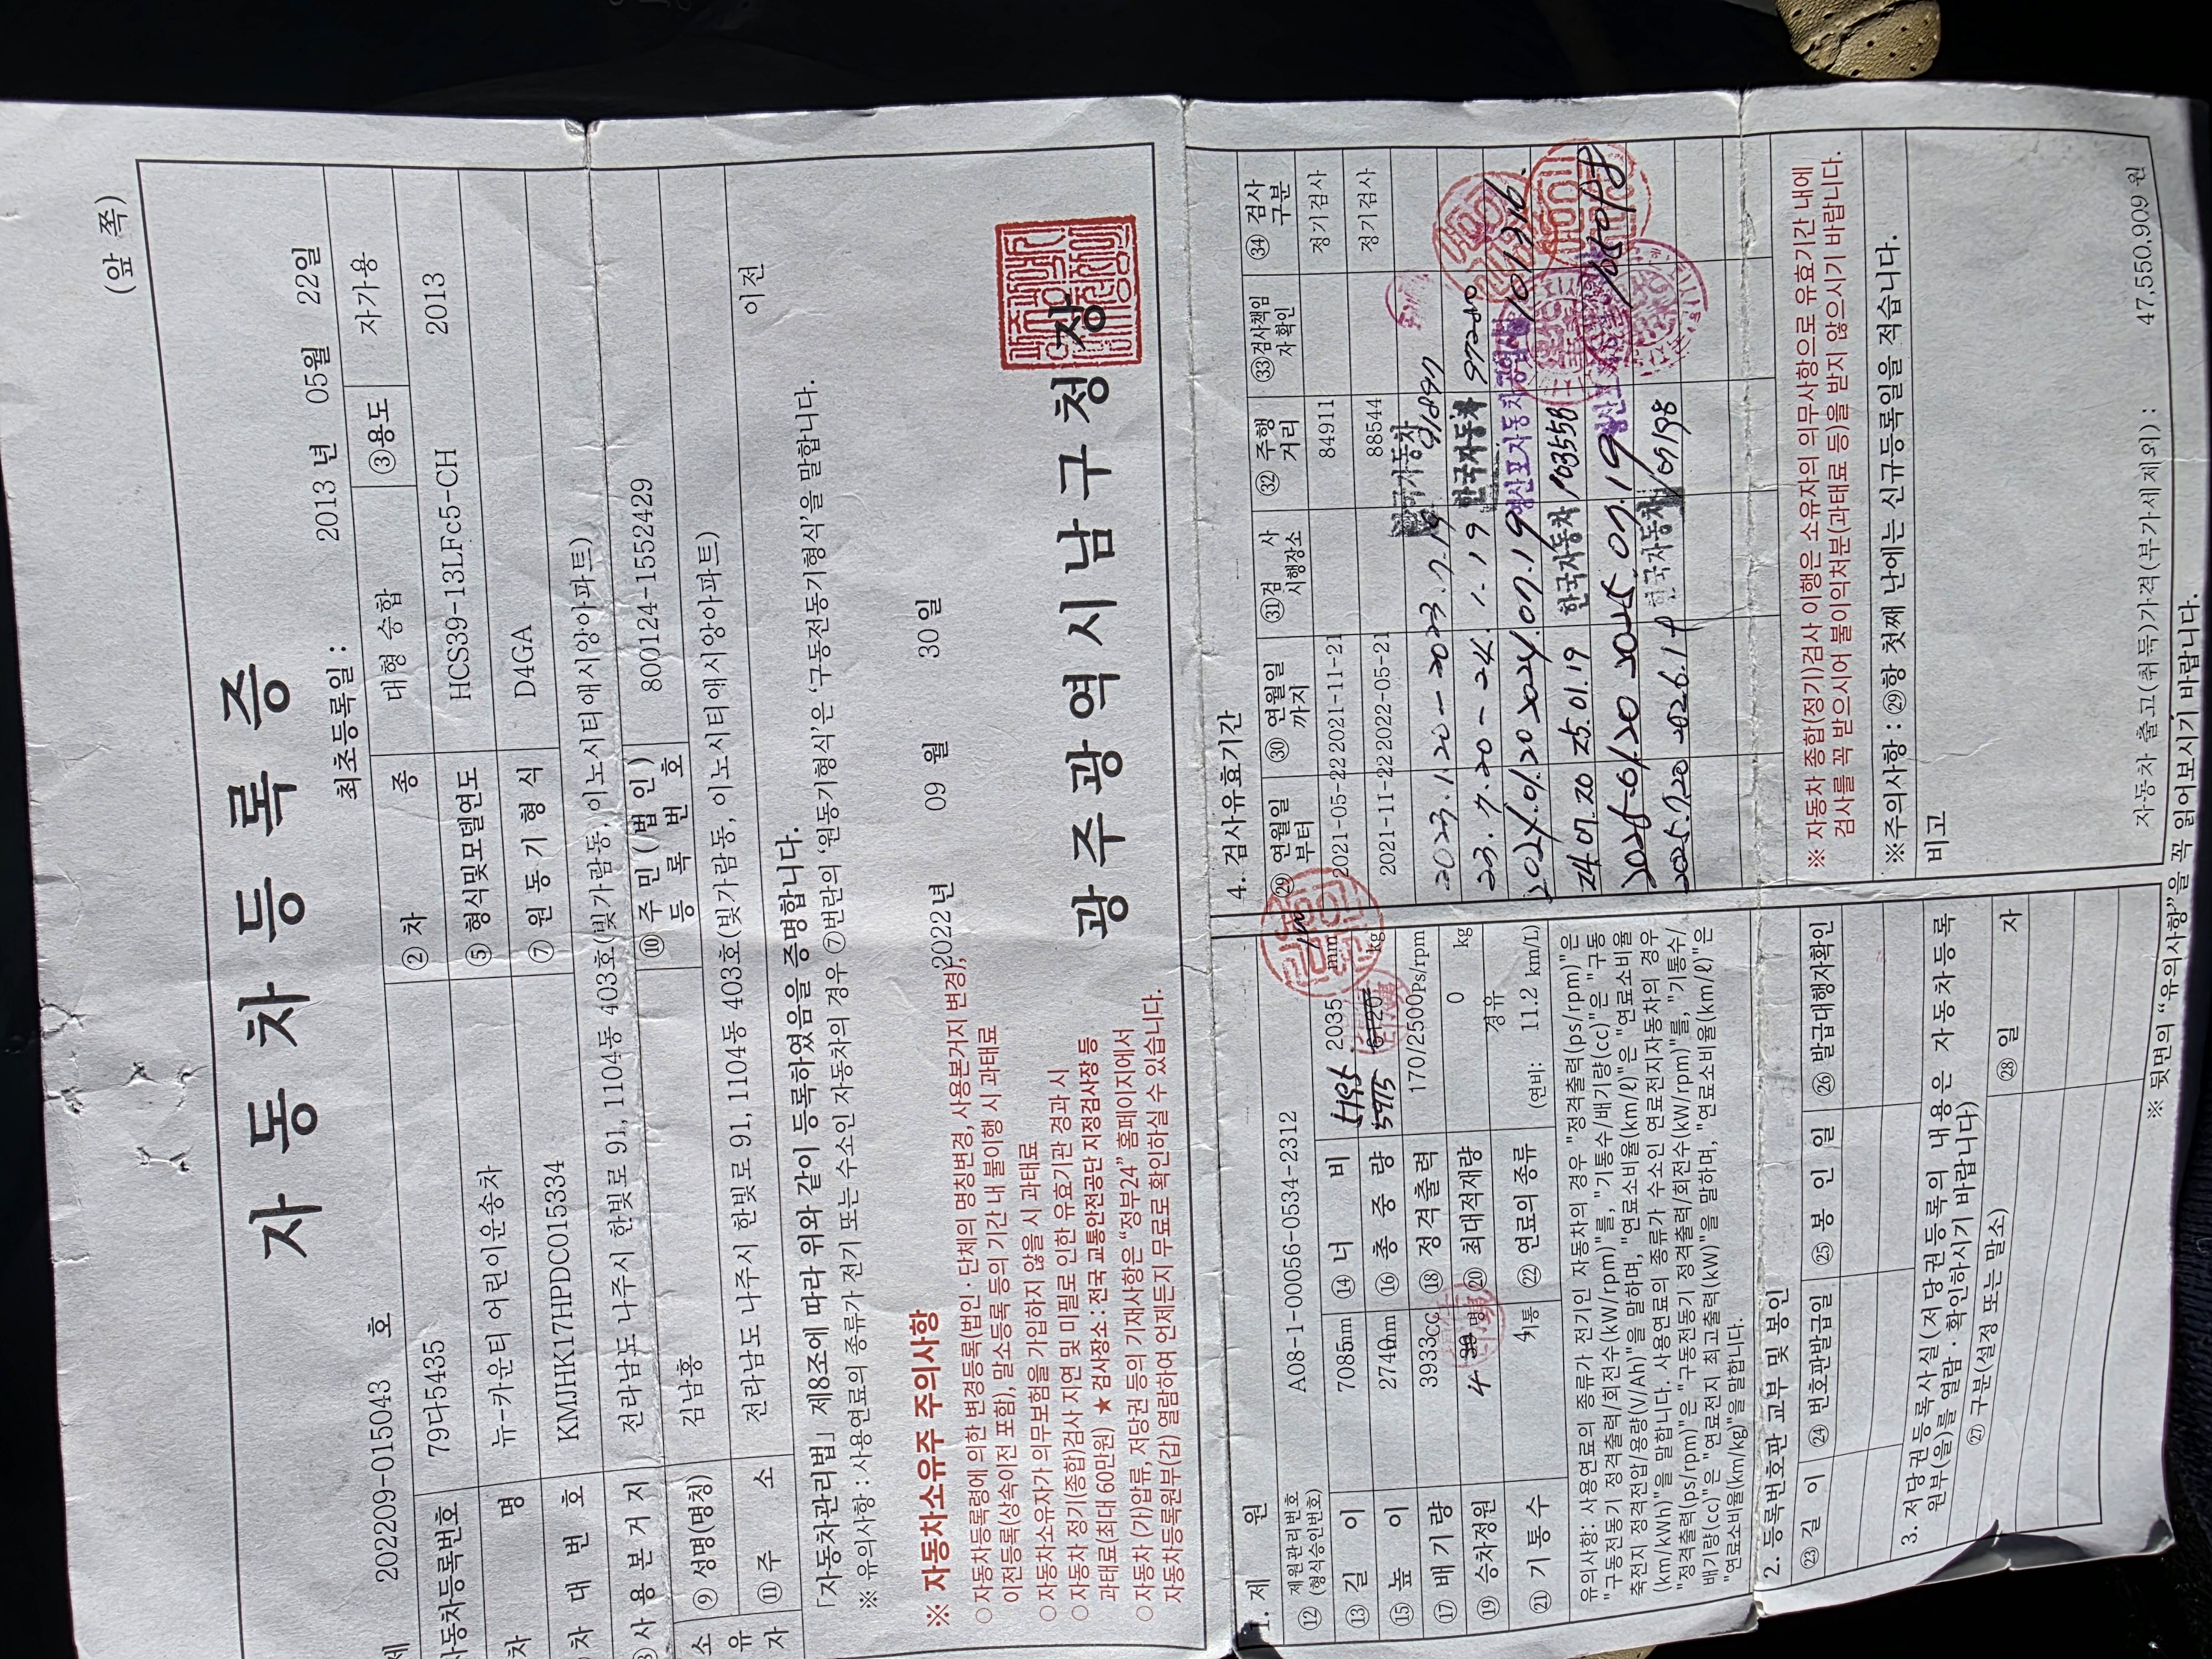 (앞 쪽)
자 동 차 등 록 증
제 202209-015043 호
최초등록일 : 2013 년 05월 22일
자동차등록번호 79다5435
② 차 종 대형 승합
③용도 자가용
차 명 뉴-카운티 어린이운송차
⑤ 형식및모델연도 HCS39-13LFc5-CH 2013
차 대 번 호 KMJHK17HPDC015334
⑦ 원 동 기 형 식 D4GA
사 용 본 거 지 전라남도 나주시 한빛로 91, 1104동 403호(빛가람동, 이노시티애시앙아파트)
소 유 자
⑨ 성명(명칭) 김남홍
⑩ 주 민 (법 인) 등 록 번 호 800124-1552429
⑪ 주 소 전라남도 나주시 한빛로 91, 1104동 403호(빛가람동, 이노시티애시앙아파트)
이전
「자동차관리법」 제8조에 따라 위와 같이 등록하였음을 증명합니다.
※ 유의사항 : 사용연료의 종류가 전기 또는 수소인 자동차의 경우 ⑦번란의 '원동기형식'은 '구동전동기형식'을 말합니다.
2022년 09 월 30일
※ 자동차소유주 주의사항
○자동차등록령에 의한 변경등록(법인 · 단체의 명칭변경, 사용본거지 변경),
이전등록(상속이전 포함), 말소등록 등의 기간 내 불이행 시 과태료
○자동차소유자가 의무보험을 가입하지 않을 시 과태료
○자동차 정기(종합)검사 지연 및 미필로 인한 유효기관 경과 시
과태료(최대 60만원) ★ 검사장소 : 전국 교통안전공단 지정검사장 등
○자동차 (가)압류, 저당권 등의 기재사항은 "정부24" 홈페이지에서
자동차등록원부(갑) 열람하여 언제든지 무료로 확인하실 수 있습니다.
광 주 광 역 시 남 구 청 장
1. 제 원
⑫ 제원관리번호 (형식승인번호) A08-1-00056-0534-2312
⑬ 길 이 7085mm
⑭ 너 비 2035 mm
⑮ 높 이 2740mm
⑯ 총 중 량 5975 kg
⑰ 배 기 량 3933CC
⑱ 정 격 출 력 170/2500Ps/rpm
⑲ 승차정원 명
⑳ 최대적재량 0 kg
㉑ 기 통 수 4기통
㉒ 연료의 종류 경유
(연비: 11.2 km/L)
유의사항: 사용연료의 종류가 전기인 자동차의 경우 "정격출력(ps/rpm)"은
"구동전동기 정격출력/회전수(kW/rpm)"를, "기통수/배기량(cc)"은 "구동
축전지 정격전압/용량(V/Ah)"을 말하며, "연료소비율(km/ℓ)"은 "연료소비율
(km/kWh)"을 말합니다. 사용연료의 종류가 수소인 연료전지자동차의 경우
"정격출력(ps/rpm)"은 "구동전동기 정격출력/회전수(kW/rpm)"를, "기통수/
배기량(cc)"은 "연료전지 최고출력(kW)"을 말하며, "연료소비율(km/ℓ)"은
"연료소비율(km/kg)"을 말합니다.
2. 등록번호판 교부 및 봉인
㉓ 길 이 ㉔ 번호판발급일 ㉕ 봉 인 일 ㉖ 발급대행자확인
3. 저당권등록사실(저당권등록의 내용은 자동차등록
원부(을)를 열람 · 확인하시기 바랍니다)
㉗ 구분(설정 또는 말소) ㉘ 일 자
4. 검사유효기간
㉙ 연월일 부터 ㉚ 연월일 까지 ㉛검 사 시행장소 ㉜ 주행 거리 ㉝검사책임 자확인 ㉞ 검사 구분
2021-05-22 2021-11-21 84911 정기검사
2021-11-22 2022-05-21 88544 정기검사
2023.1.20 - 2023.7.19 한국자동차
23.7.20 - 24.1.19 한국자동차 97280
2024.01.20 2024.07.19 영산포자동차공업사 101316
24.07.20 25.01.19 한국자동차 103558
2025-01.20 2025.07.19 영산포
2025.7.20 2026.1.19 한국자동차
※ 자동차 종합(정기)검사 이행은 소유자의 의무사항으로 유효기간 내에
검사를 꼭 받으시어 불이익처분(과태료 등)을 받지 않으시기 바랍니다.
※주의사항 : ㉙항 첫째 난에는 신규등록일을 적습니다.
비고
자동차 출고(취득)가격(부가세제외) : 47,550,909 원
※ 뒷면의 "유의사항"을 꼭 읽어보시기 바랍니다.